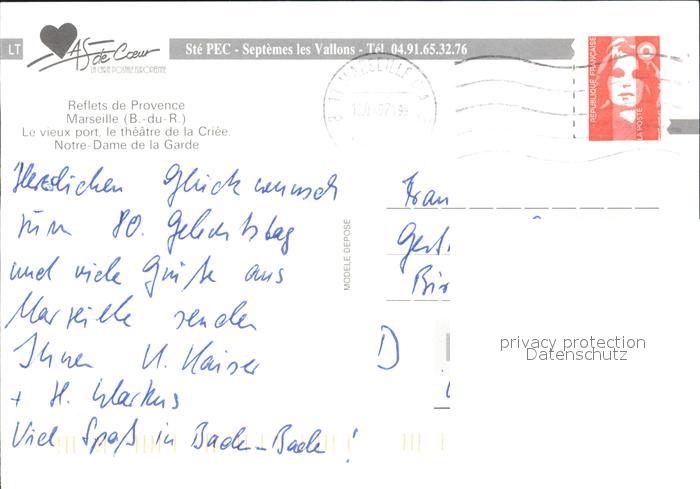 LT
AS de Cœur
LA CARTE POSTALE EUROPEENNE
Sté PEC - Septèmes les Vallons - Tél. 04.91.65.32.76
REPUBLIQUE FRANÇAISE
LA POSTE
MARSEILLE
Reflets de Provence
Marseille (B.-du-R.)
Le vieux port, le théâtre de la Criée.
Notre-Dame de la Garde
Herzlichen Glückwunsch
zum 80. Geburtstag
und viele Grüße aus
Marseille senden
Ihnen U. Kaiser
+ H. Markus
Viel Spaß in Baden-Baden!
MODELE DEPOSE
Frau
D
privacy protection
Datenschutz